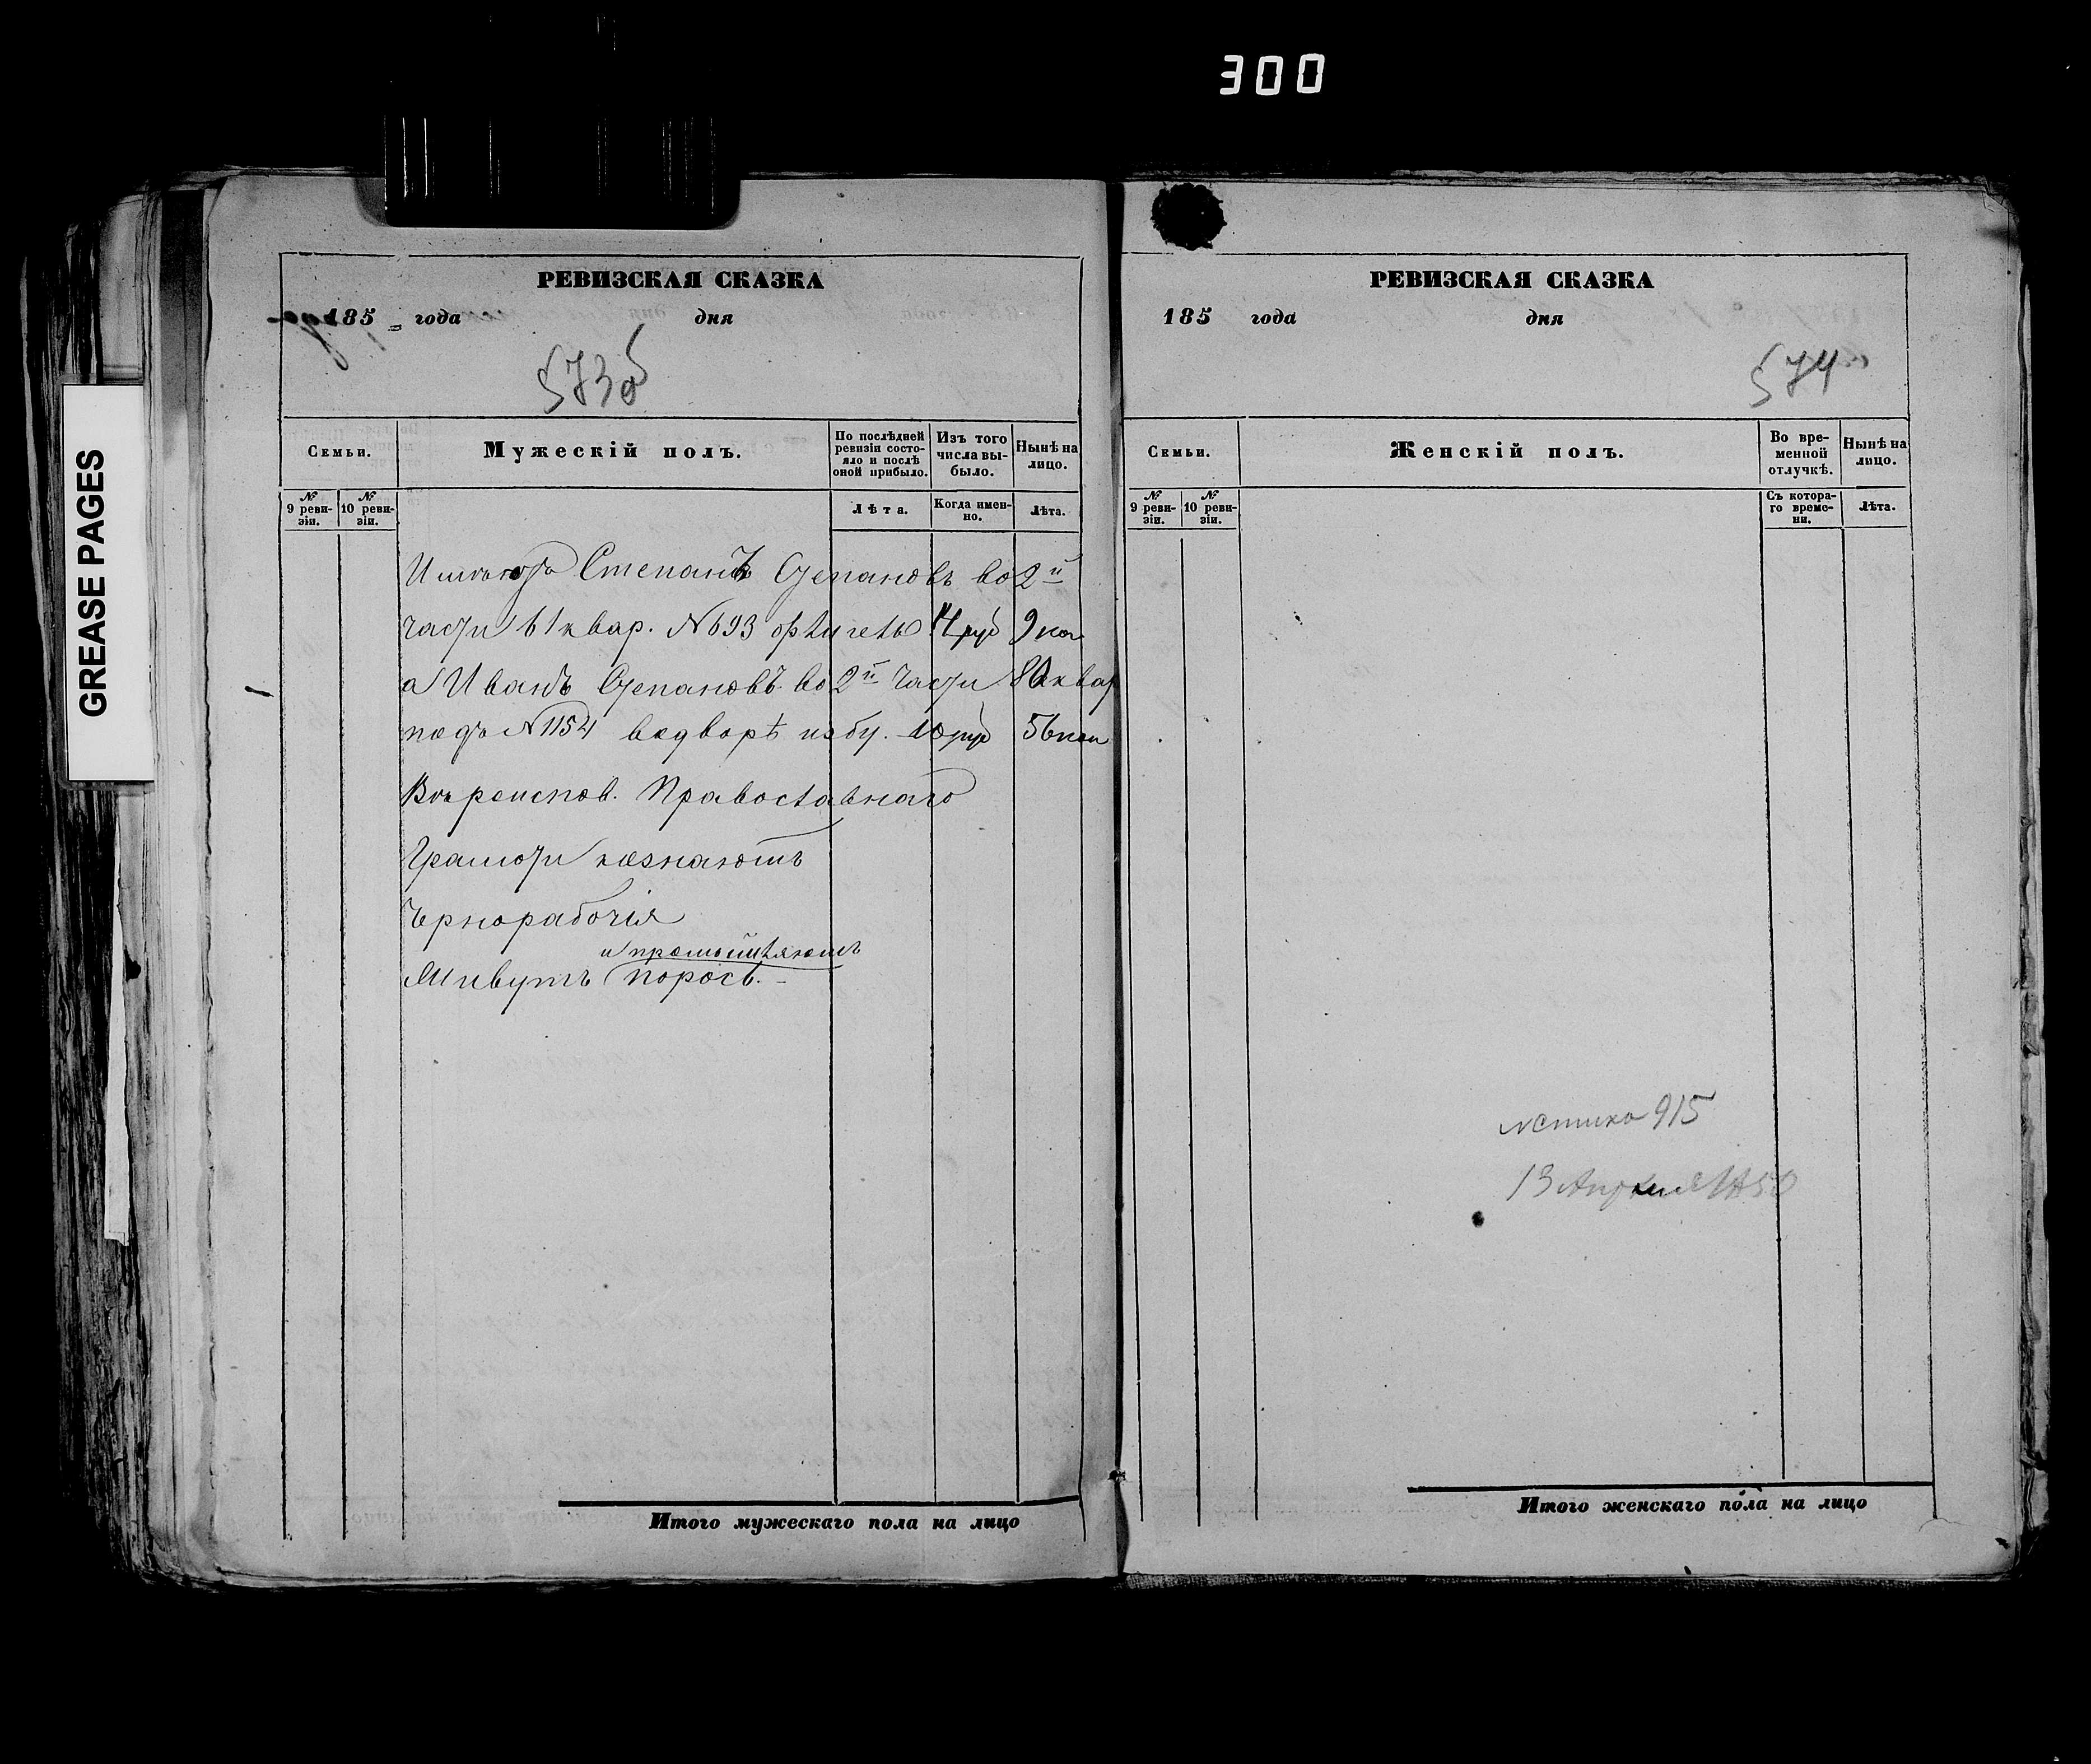 300
GREASE PAGES
РЕВИЗСКАЯ СКАЗКА
185 года дня
573об
Семьи.
Мужескій полъ.
По послѣдней ревизіи состояло и послѣ оной прибыло.
Изъ того числа выбыло.
Нынѣ на лицо.
№ 9 ревизіи.
№ 10 ревизіи.
Лѣта.
Когда именно.
Лѣта.
Степанъ Степановъ во 2й
части 61 квар. №693 флигель 4 руб 9 коп
а Иванъ Степановъ во 2й части 80 квар
подъ №1154 водворѣ избу. 10 руб 56 коп
Вѣроиспов. Православнаго
Грамоти незнаютъ
Чернорабочія
и промышляютъ
Живутъ порось.
Итого мужескаго пола на лицо
РЕВИЗСКАЯ СКАЗКА
185 года дня
574
Семьи.
Женскій полъ.
Во временной отлучкѣ.
Нынѣ на лицо.
№ 9 ревизіи.
№ 10 ревизіи.
Съ котораго времени.
Лѣта.
915
13 Апреля 1850
Итого женскаго пола на лицо